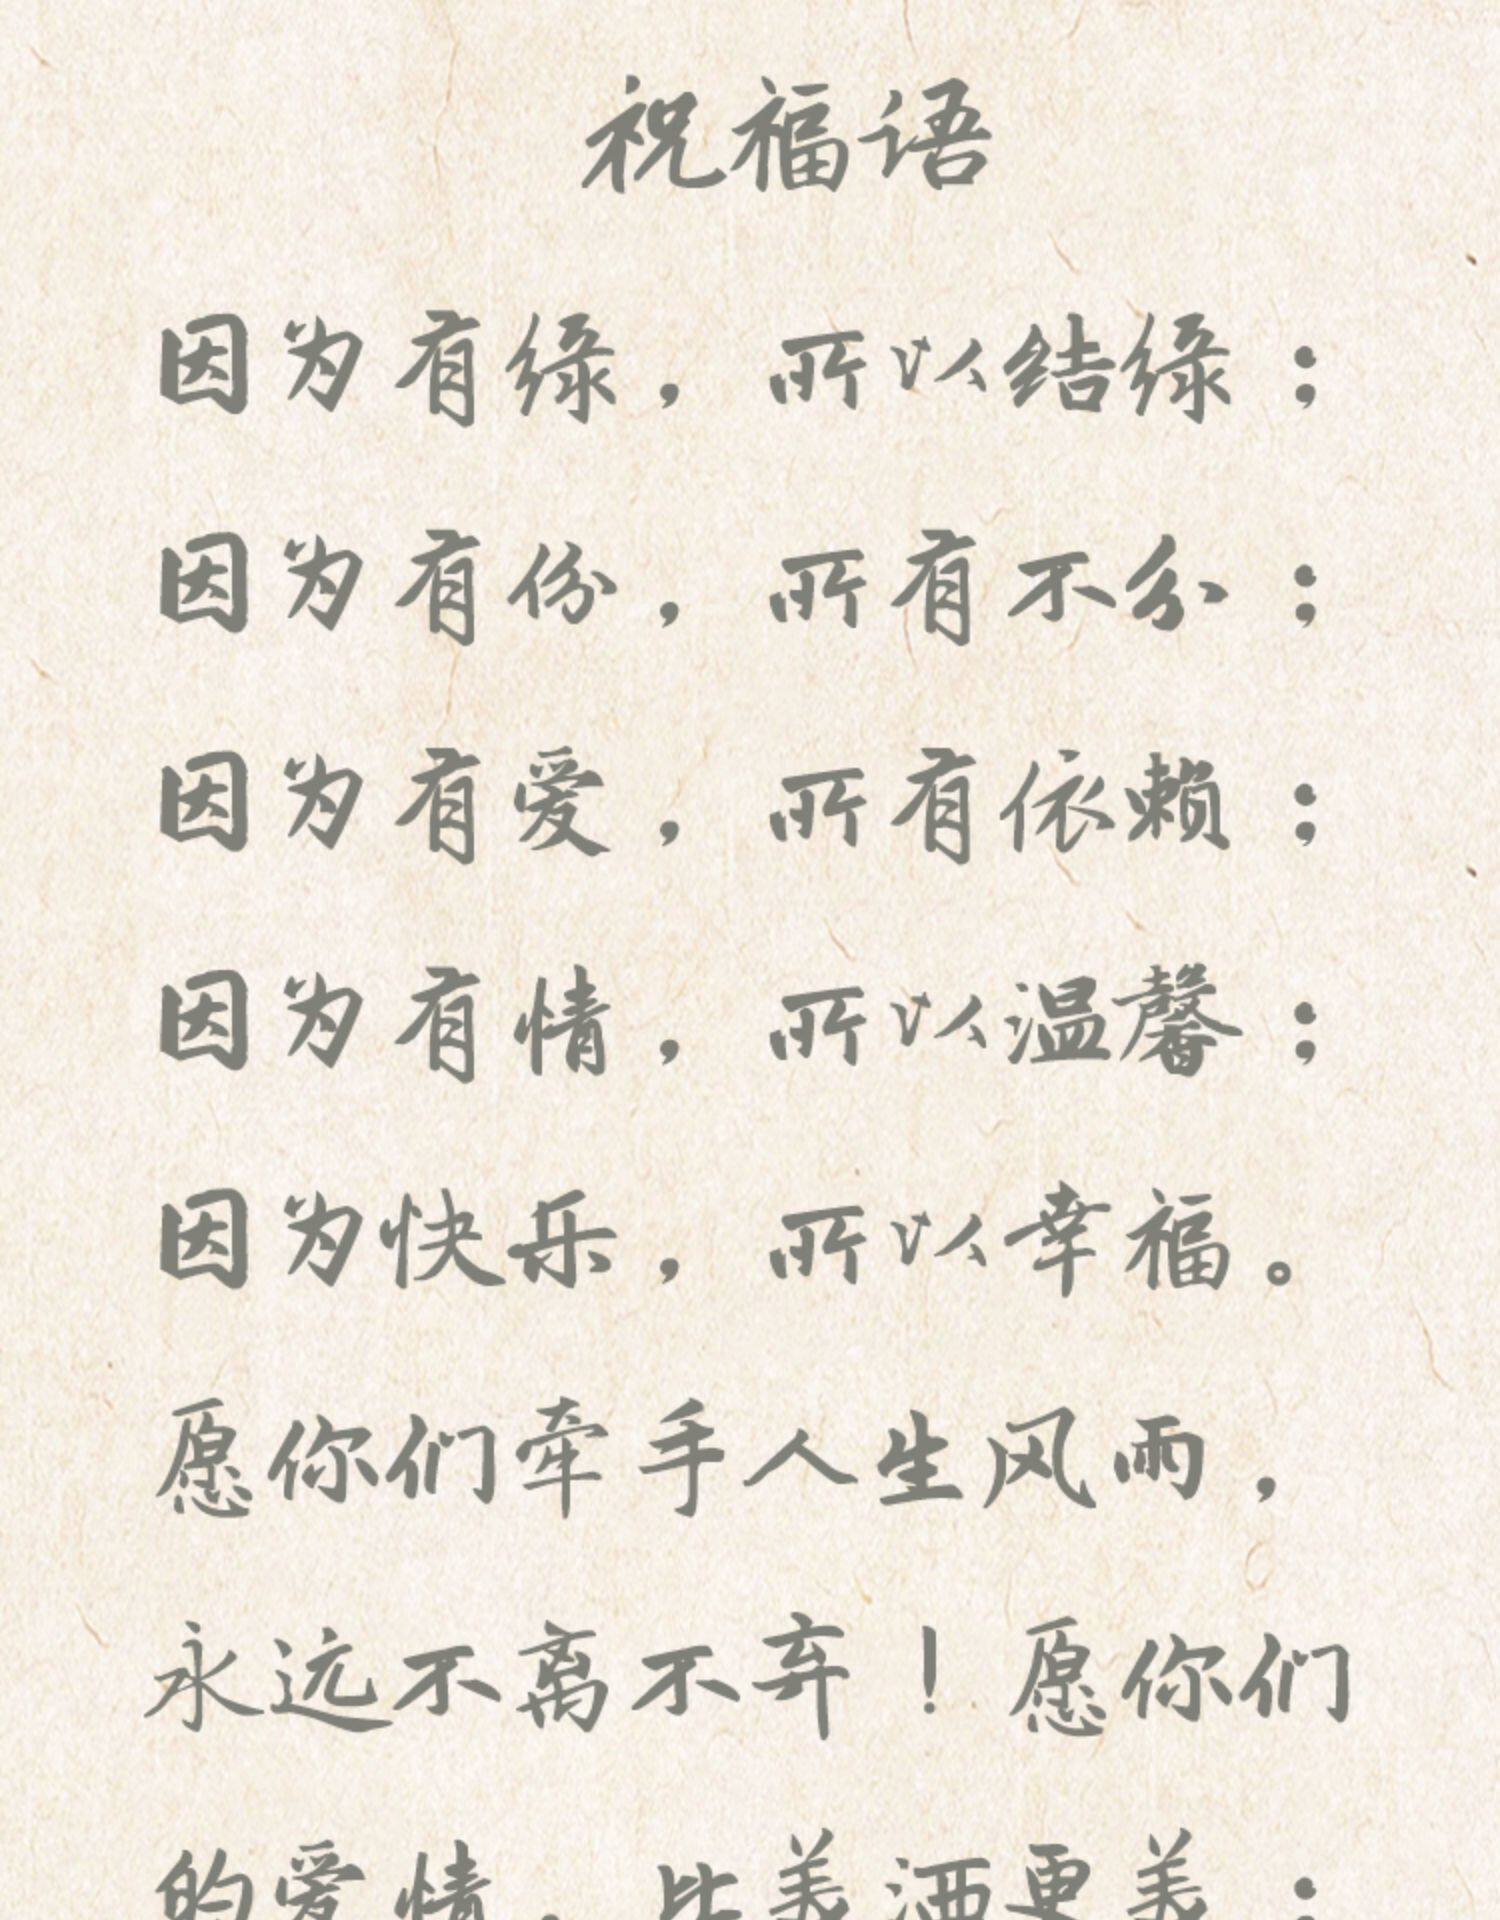 祝福语
因为有缘，所以结缘；
因为有份，所有不分；
因为有爱，所有依赖；
因为有情，所以温馨；
因为快乐，所以幸福。
愿你们牵手人生风雨，
永远不离不弃！愿你们
的爱情，比美酒更美；